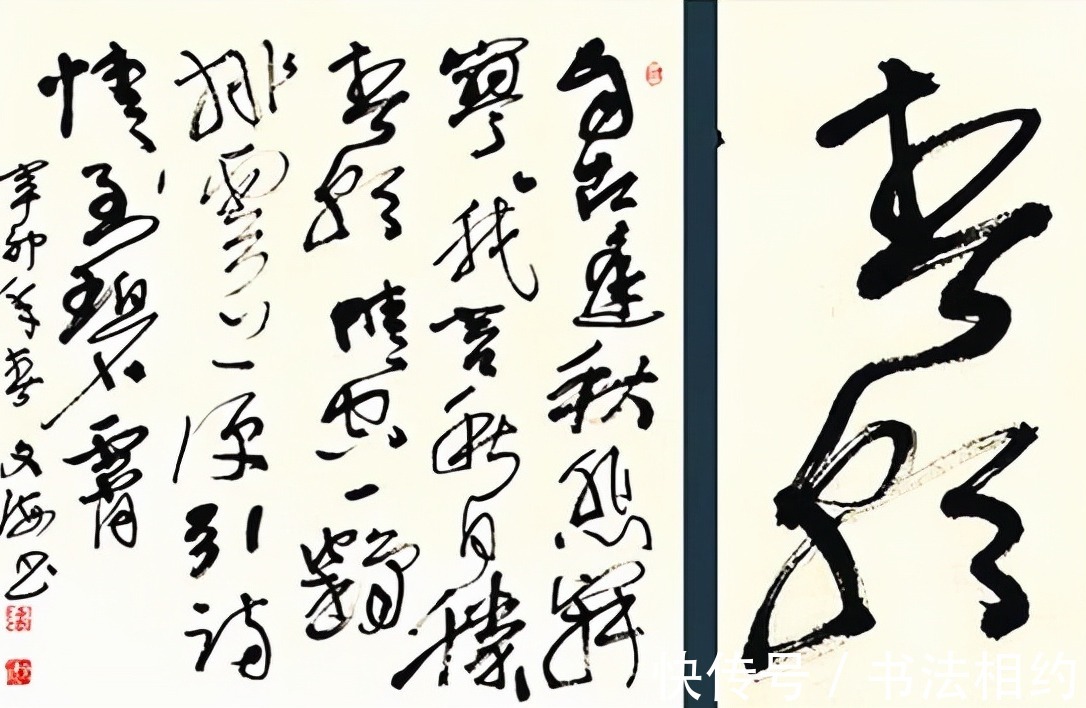 自古逢秋悲寂
寥我言秋日勝
春朝晴空一鶴
排雲上便引诗
情到碧霄
辛卯年春文海书
春朝
快传号 / 书法相约